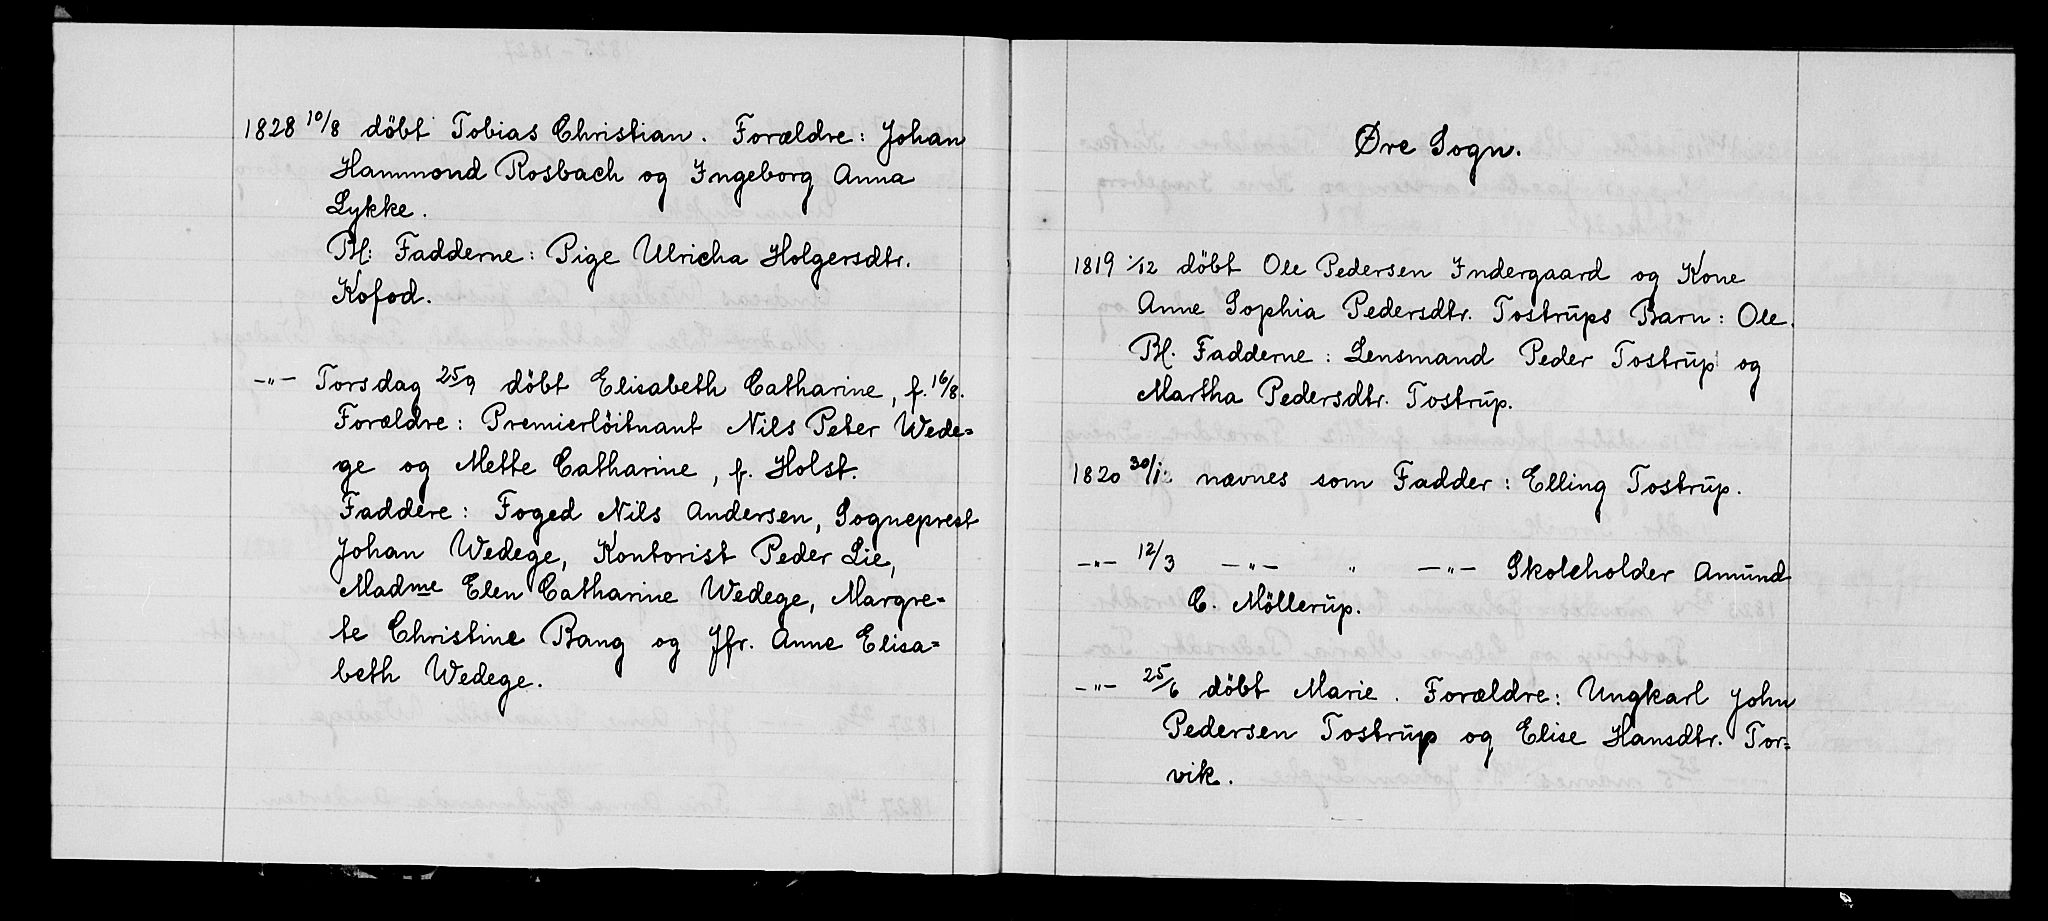 1828 10/8 döbt Tobias Christian. Forældre: Johan
Hammond Rosbach og Ingeborg Anna
Lykke.
Bl: Fadderne: Pige Ulricha Holgersdtr.
Kofod.
-"- Torsdag 25/9 döbt Elisabeth Catharine, f. 16/8.
Forældre: Premierlöitnant Nils Peter Wede=
ge og Mette Catharine, f. Holst.
Faddere: Foged Nils Andersen, Sogneprest
Johan Wedege, Kontorist Peder Lie,
Madme Elen Catharine Wedege, Margre=
te Christine Bang og Jfr. Anne Elisa=
beth Wedege.
Øre Sogn.
1819 1/12 döbt Ole Pedersen Indergaard og Kone
Anne Sophia Pedersdtr. Tostrups Barn: Ole.
Bl. Fadderne: Lensmand Peder Tostrup og
Martha Pedersdtr. Tostrup.
1820 30/1 nævnes som Fadder: Elling Tostrup.
-"- 12/3 -"- " -"- Skoleholder Amund
C. Möllerup.
-"- 25/6 döbt Marie. Forældre: Ungkarl John
Pedersen Tostrup og Elise Hansdtr. Tor=
vik.